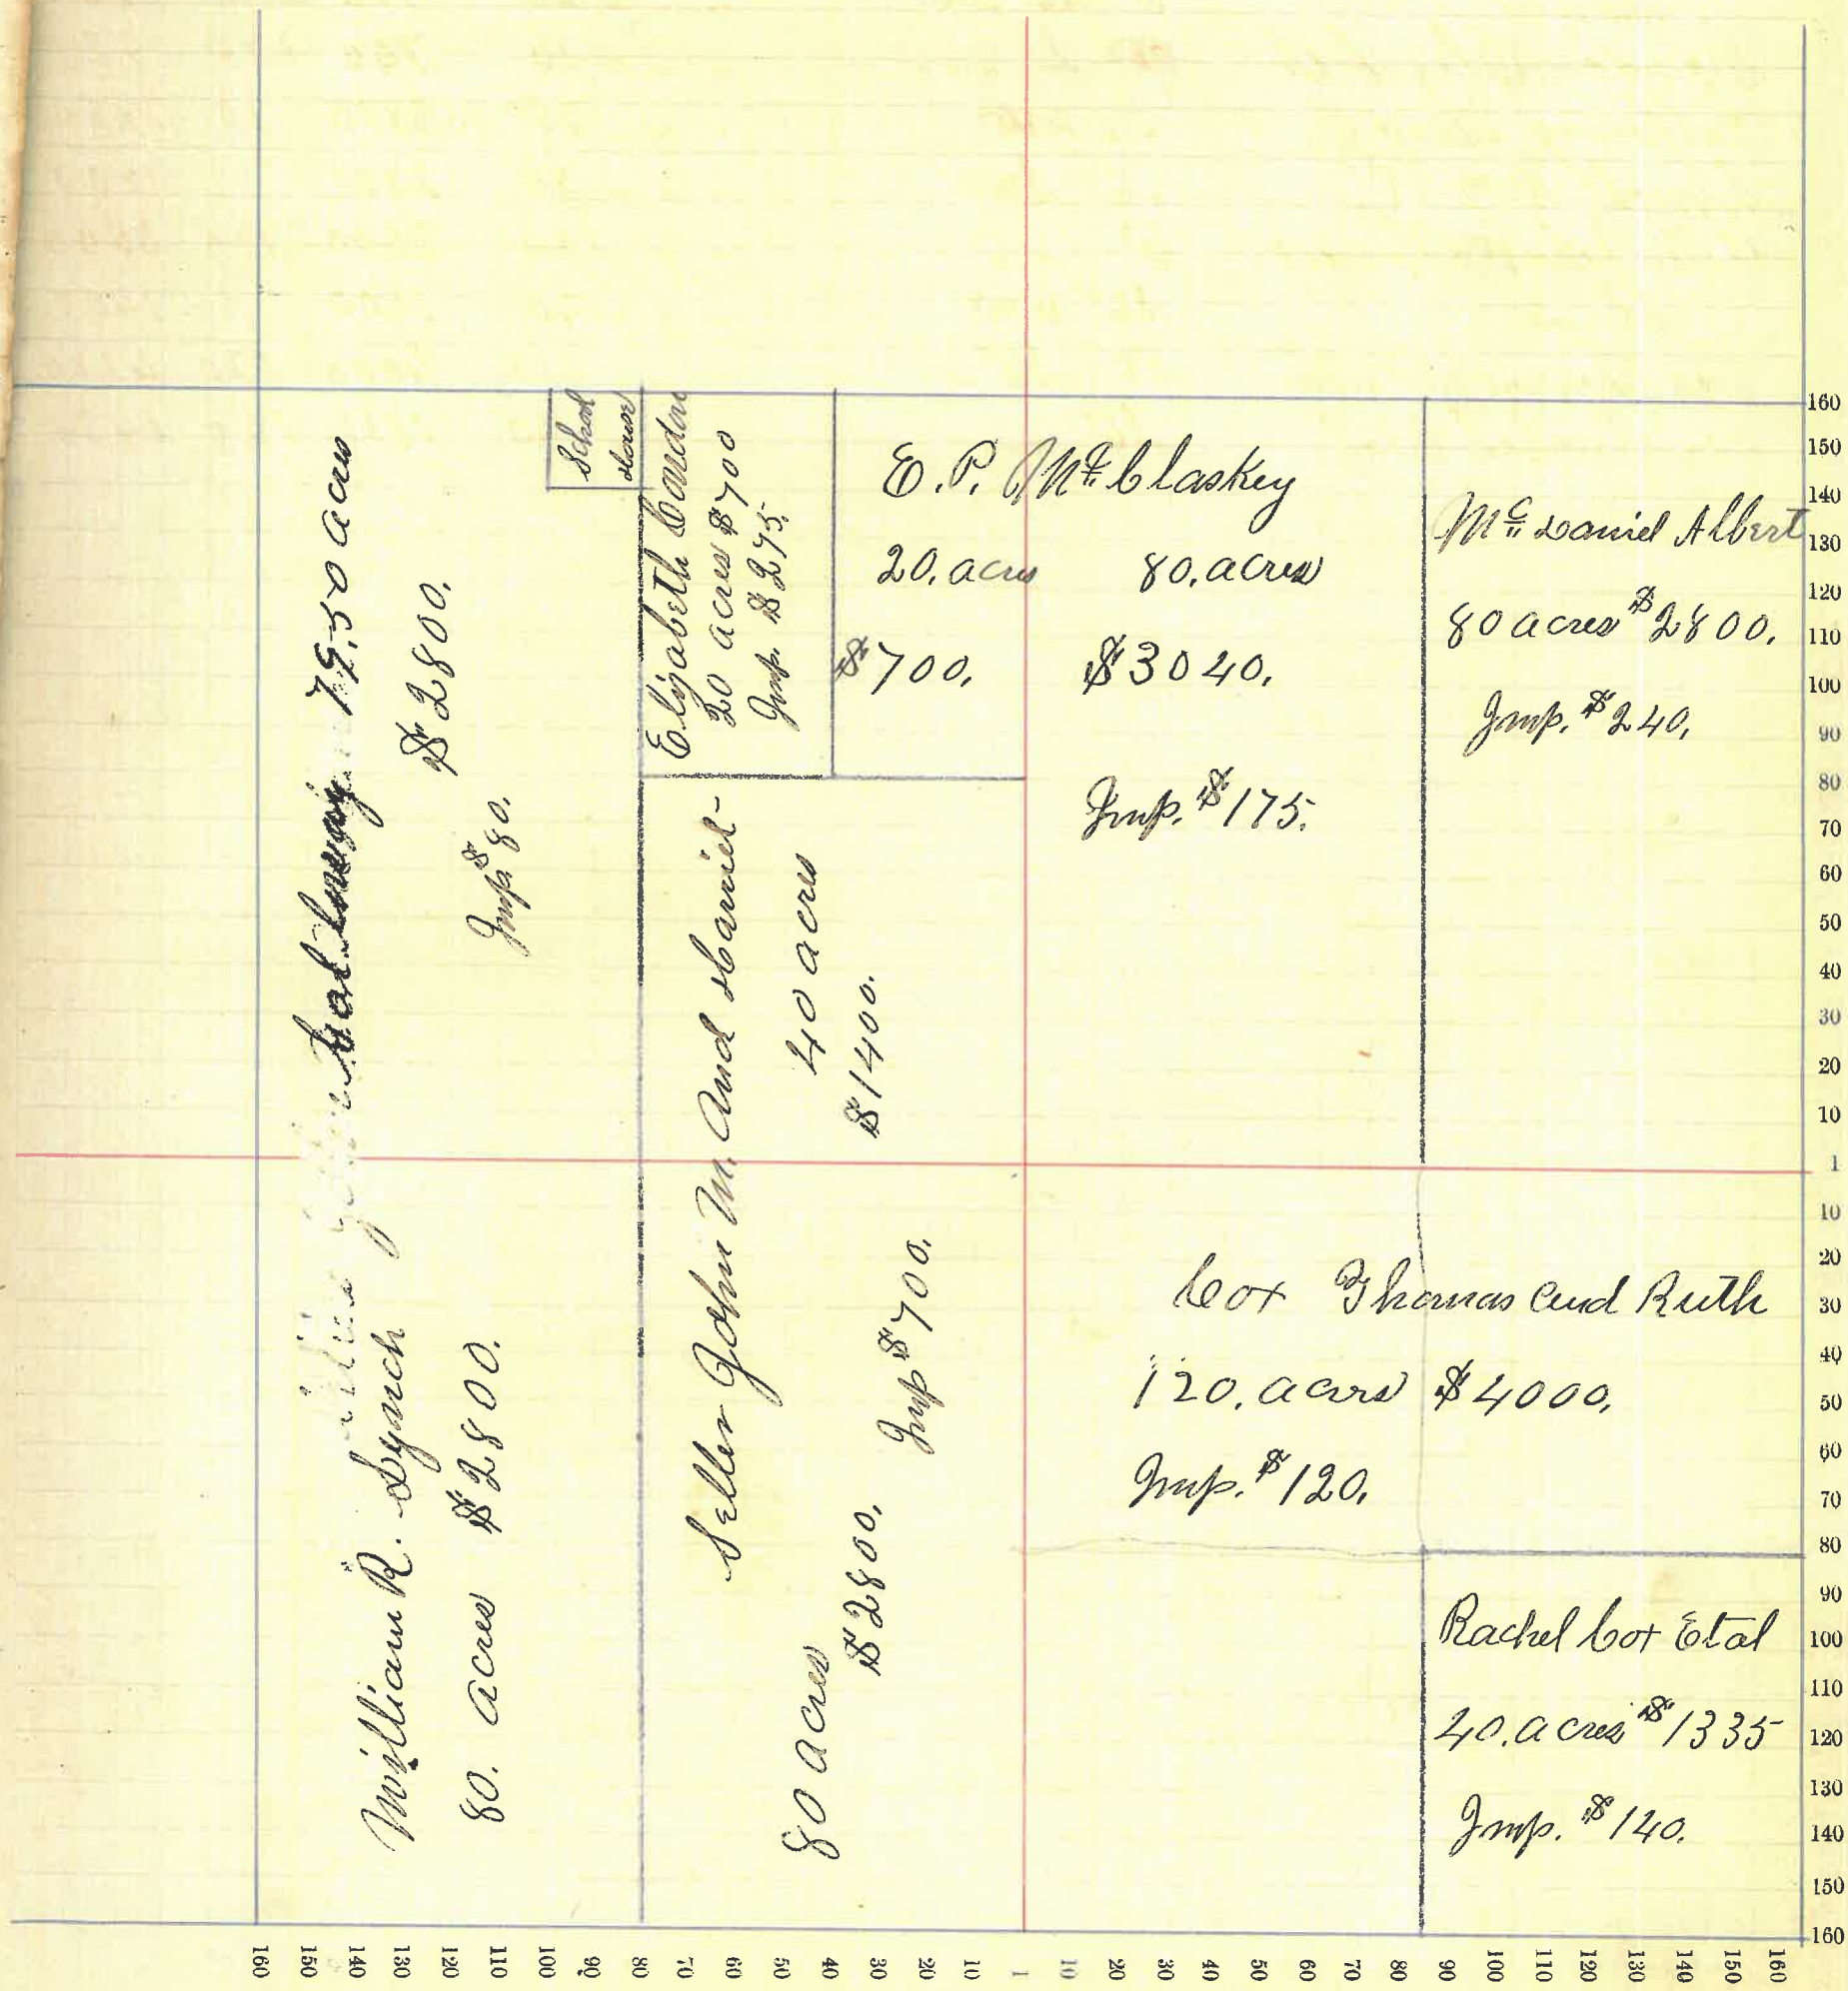 School
House
79.50 acres
$2800.
Imp $80.
William R. Lynch
80. acres $2800.
Elizabeth Cardin
20 acres $700
Imp. $275.
Seller John M. And Harriet
40 acres
$1400.
80 acres
$2800.
Imp $700.
E. P. McClaskey
20. acres 80. acres
$700. $3040.
Imp. $175.
Mc Daniel Albert
80 acres $2800.
Imp. $240.
Cox Thomas and Ruth
120. acres $4000.
Imp. $120.
Rachel Cox Etal
40. acres $1335
Imp. $140.
160
150
140
130
120
110
100
90
80
70
60
50
40
30
20
10
1
10
20
30
40
50
60
70
80
90
100
110
120
130
140
150
160
160 150 140 130 120 110 100 90 80 70 60 50 40 30 20 10 1 10 20 30 40 50 60 70 80 90 100 110 120 130 140 150 160